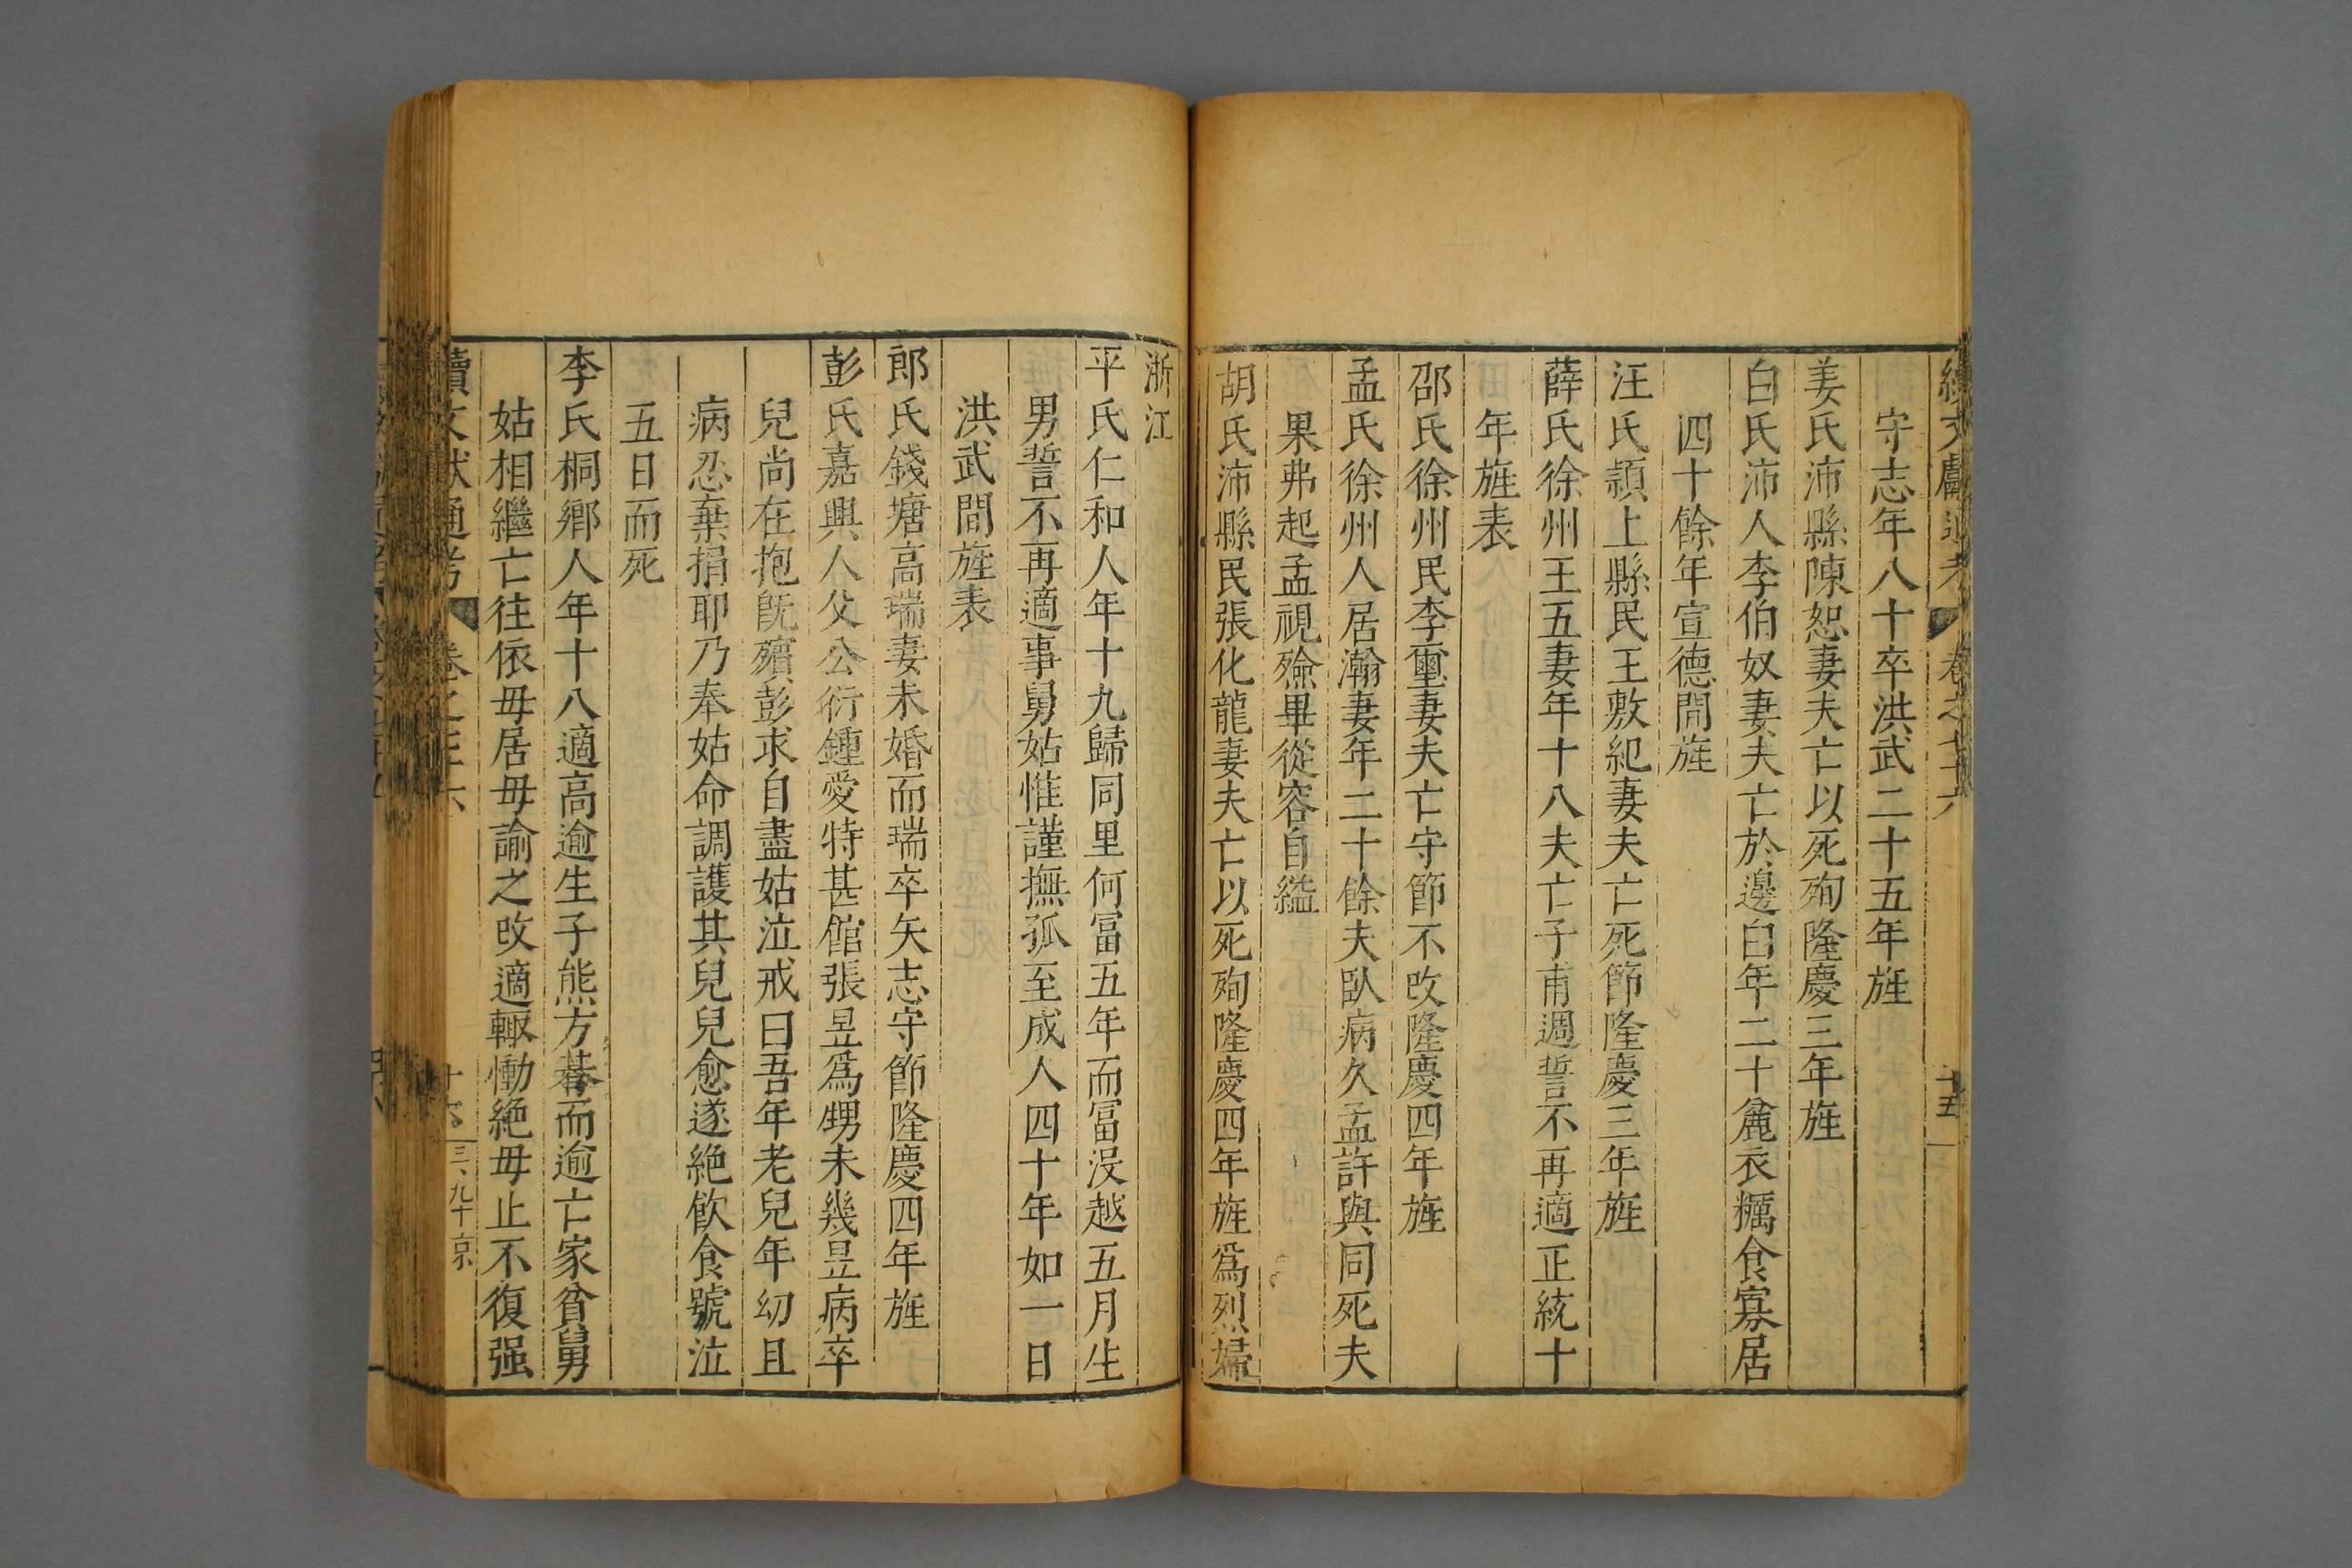 續文獻通考 卷之七十六 十五
守志年八十卒洪武二十五年旌
姜氏沛縣陳恕妻夫亡以死殉隆慶三年旌
白氏沛人李伯奴妻夫亡於邊白年二十麄衣糲食寡居
四十餘年宣德間旌
汪氏潁上縣民王敷紀妻夫亡死節隆慶三年旌
薛氏徐州王五妻年十八夫亡子甫週誓不再適正統十
年旌表
邵氏徐州民李璽妻夫亡守節不改隆慶四年旌
孟氏徐州人居瀚妻年二十餘夫臥病久孟許與同死夫
果弗起孟視殮畢從容自縊
胡氏沛縣民張化龍妻夫亡以死殉隆慶四年旌爲烈婦
浙江
平氏仁和人年十九歸同里何冨五年而冨沒越五月生
男誓不再適事舅姑惟謹撫孤至成人四十年如一日
洪武間旌表
郎氏錢塘高瑞妻未婚而瑞卒矢志守節隆慶四年旌
彭氏嘉興人父公衍鍾愛特甚館張昱爲甥未幾昱病卒
兒尚在抱旣殯彭求自盡姑泣戒曰吾年老兒年幼且
病忍棄捐耶乃奉姑命調護其兒兒愈遂絶飮食號泣
五日而死
李氏桐鄉人年十八適高逾生子熊方朞而逾亡家貧舅
姑相繼亡往依毋居毋諭之改適輙慟絶毋止不復强
續文獻通考 卷之七十六 十六 三九十 京